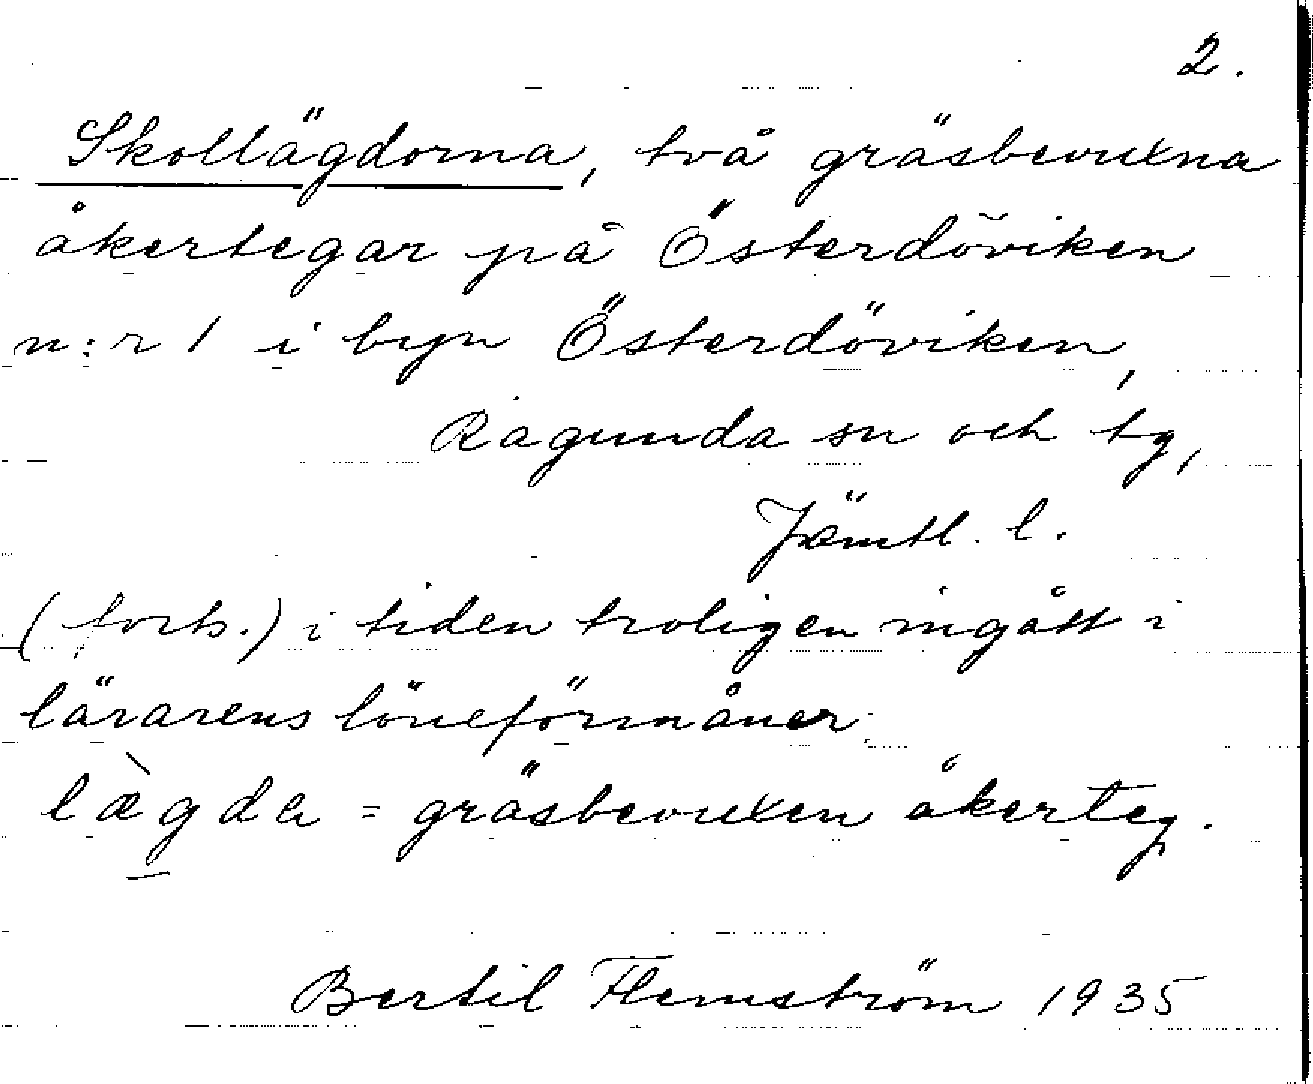 2.
Skollägdorna, två gräsbevuxna
åkertegar på Österdöviken
n:r 1 i byn Österdöviken,
Ragunda sn och tg,
Jämtl. l.
(forts.) i tiden troligen ingått i
lärarens löneförmåner.
læ̀gda = gräsbevuxen åkerteg.
Bertil Flemström 1935